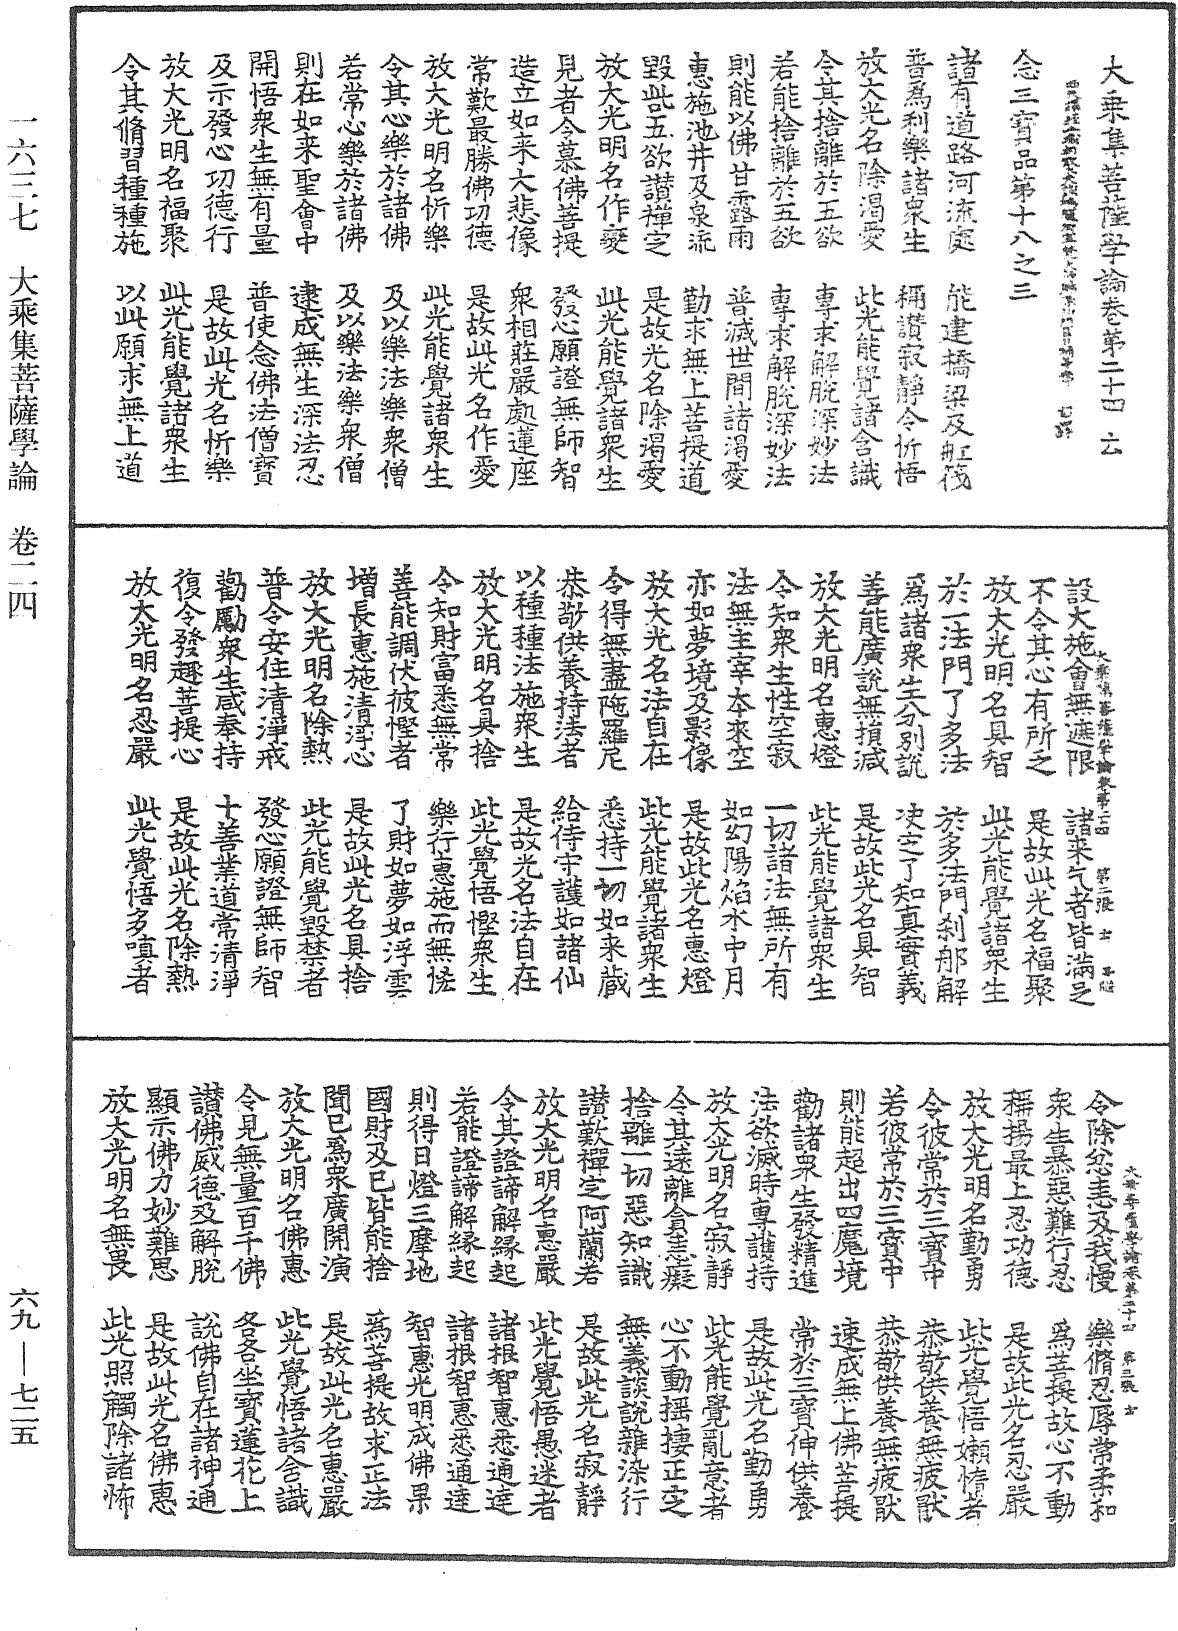 大乘集菩薩學論卷第二十四 云
念三寶品第十八之三
諸有道路河流處 能建橋梁及舡筏
普爲利樂諸衆生 稱讃寂靜令忻悟
放大光名除渴愛 此光能覺諸含識
令其捨離於五欲 專求解脫深妙法
若能捨離於五欲 專求解脫深妙法
則能以佛甘露雨 普滅世間諸渴愛
惠施池井及泉流 勤求無上菩提道
毀呰五欲讃禪定 是故光名除渴愛
放大光明名作愛 此光能覺諸衆生
見者令慕佛菩提 發心願證無師智
造立如来大悲像 衆相莊嚴處蓮座
常歎最勝佛功德 是故此光名作愛
放大光明名忻樂 此光能覺諸衆生
令其心樂於諸佛 及以樂法樂衆僧
若常心樂於諸佛 及以樂法樂衆僧
則在如来聖會中 逮成無生深法忍
開悟衆生無有量 普使念佛法僧寳
及示發心功德行 是故此光名忻樂
放大光明名福聚 此光能覺諸衆生
令其脩習種種施 以此願求無上道
設大施會無遮限 諸来乞者皆滿足
不令其心有所乏 是故此光名福聚
放大光明名具智 此光能覺諸衆生
於一法門了多法 於多法門刹那解
爲諸衆生分别說 决之了知真實義
善能廣說無損減 是故此光名具智
放大光明名惠燈 此光能覺諸衆生
令知衆生性空寂 一切諸法無所有
法無主宰本来空 如幻陽焰水中月
亦如夢境及影像 是故此光名惠燈
放大光名法自在 此光能覺諸衆生
令得無盡陁羅尼 悉持一切如来藏
恭敬供養持法者 給侍守護如諸仙
以種種法施衆生 是故光名法自在
放大光明名具捨 此光覺悟慳衆生
令知財富悉無常 樂行惠施而無恡
善能調伏彼慳者 了財如夢如浮雲
增長惠施清淨心 是故此光名具捨
放大光明名除熱 此光能覺毀禁者
普令安住清淨戒 發心願證無師智
勸勵衆生咸奉持 十善業道常清淨
復令發趣菩提心 是故此光名除熱
放大光明名忍嚴 此光覺悟多嗔者
令除忿恚及我慢 樂脩忍辱常柔和
衆生暴惡難行忍 爲菩提故心不動
稱揚最上忍功德 是故此光名忍嚴
放大光明名勤勇 此光覺悟嬾惰者
令彼常於三寳中 恭敬供養無疲猒
若彼常於三寳中 恭敬供養無疲猒
則能超出四魔境 速成無上佛菩提
勸諸衆生發精進 常於三寳伸供養
法欲滅時專護持 是故此光名勤勇
放大光明名寂靜 此光能覺亂意者
令其遠離貪恚癡 心不動摇捿正定
捨離一切惡知識 無義談說雜染行
讃歎禪定阿蘭若 是故此光名寂靜
放大光明名惠嚴 此光覺悟愚迷者
令其證諦解緣起 諸根智惠悉通達
若能證諦解緣起 諸根智惠悉通達
則得日燈三摩地 智惠光明成佛果
國財及己皆能捨 爲菩提故求正法
聞已爲衆廣開演 是故此光名惠嚴
放大光明名佛惠 此光覺悟諸含識
令見無量百千佛 各各坐寳蓮花上
讃佛威德及解脫 說佛自在諸神通
顯示佛力妙難思 是故此光名佛惠
放大光明名無畏 此光照觸除諸怖
大乘集菩薩學論卷第二十四 第二張
大乘集菩薩學論卷第二十四 第三張 云
一六三七 大乘集菩薩學論 卷二四
六九——七二五